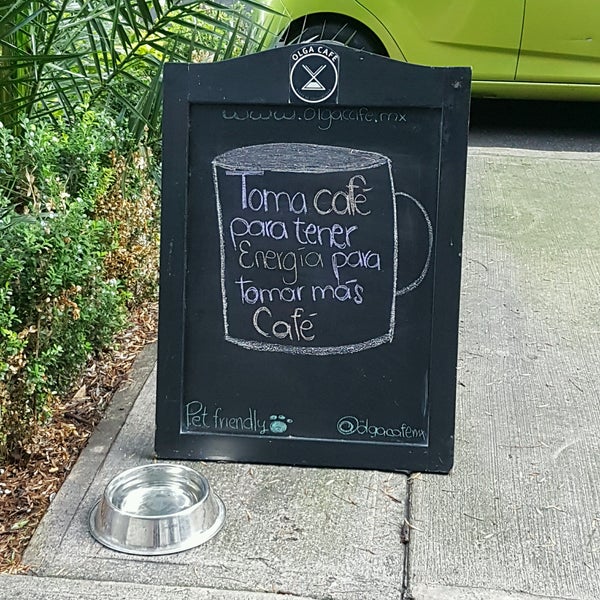 OLGA CAFE
www.olgacafe.mx
Toma café
para tener
Energía para
tomar más
Café
Pet friendly
@olgacafemx